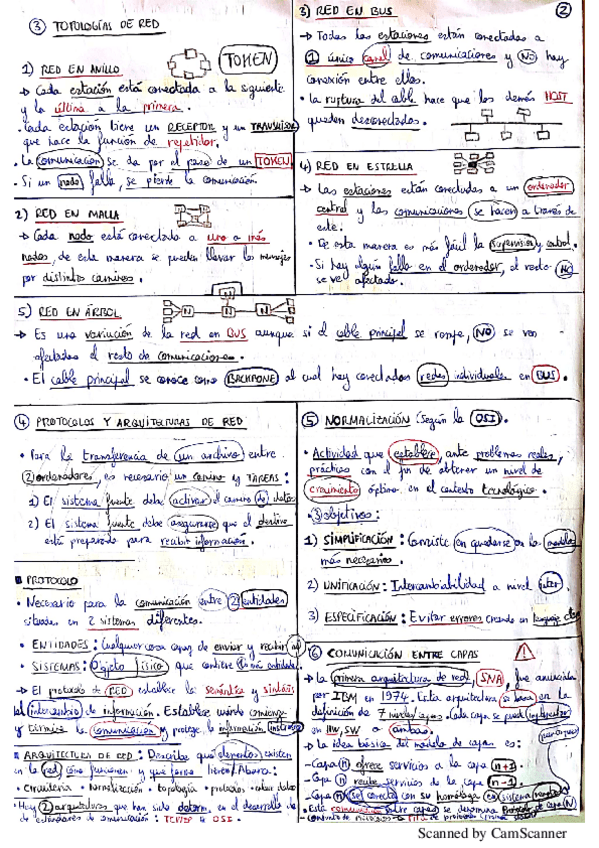 ③ TOPOLOGÍAS DE RED
TOKEN
1) RED EN ANILLO
→ Cada estación está conectada a la siguiente
y la última a la primera.
· Cada estación tiene un RECEPTOR y un TRANSMISOR
que hace la función de repetidor.
· La comunicación se da por el paso de un TOKEN
· Si un nodo falla, se pierde la comunicación.
2) RED EN MALLA
→ Cada nodo está conectado a uno o más
nodos, de esta manera se pueden llevar los mensajes
por distintos caminos.
②
3) RED EN BUS
→ Todas las estaciones están conectadas a
1 único canal de comunicaciones y NO hay
conexión entre ellas.
· La ruptura del cable hace que los demás HOST
queden desconectados.
4) RED EN ESTRELLA
→ Las estaciones están conectadas a un ordenador
central y las comunicaciones se hacen a través de
este.
· De esta manera es más fácil la supervisión y control.
· Si hay algún fallo en el ordenador, el resto NO
se ve afectado.
5) RED EN ÁRBOL
N N N
→ Es una variación de la red en BUS aunque si el cable principal se rompe, NO se ven
afectadas el resto de comunicaciones.
· El cable principal se conoce como BACKBONE al cual hay conectadas redes individuales en BUS.
④ PROTOCOLOS Y ARQUITECTURAS DE RED
· Para la transferencia de un archivo entre
2 ordenadores, es necesario un camino y TAREAS:
1) El sistema fuente debe activar el camino de datos
2) El sistema fuente debe asegurarse que el destino
está preparado para recibir información.
■ PROTOCOLO
· Necesario para la comunicación entre 2 entidades
situadas en 2 sistemas diferentes.
· ENTIDADES: Cualquier cosa capaz de enviar y recibir
· SISTEMAS: Objeto físico que contiene entidades.
→ El protocolo de RED establece la semántica y sintaxis
del intercambio de información. Establece cuándo comienza
y termina la comunicación y protege la información
■ ARQUITECTURA DE RED: Describe qué elementos existen
en la red, cómo funcionan y qué forma tienen. Abarca:
· Circuitería · Normalización · topología · protocolos
· Hay 2 arquitecturas que han sido determ. en el desarrollo de
de estándares de comunicación: TCP/IP y OSI.
⑤ NORMALIZACIÓN (Según la OSI).
· Actividad que establece, ante problemas reales,
prácticas con el fin de obtener un nivel de
crecimiento óptimo en el contexto tecnológico.
· 3 objetivos:
1) SIMPLIFICACIÓN: Consiste en quedarse con los modelos
más necesarios.
2) UNIFICACIÓN: Intercambiabilidad a nivel inter.
3) ESPECIFICACIÓN: Evitar errores creando un lenguaje claro
⑥ COMUNICACIÓN ENTRE CAPAS
→ La primera arquitectura de red, SNA, fue anunciada
por IBM en 1974. Esta arquitectura se basa en la
definición de 7 niveles/capas. Cada capa se puede implementar
en HW, SW o ambas.
→ La idea básica del modelo de capas es:
- Capa n ofrece servicios a la capa n+1.
- Capa n recibe servicios de la capa n-1.
- Capa n se conecta con su homóloga en sistema remoto
· Esta comunicación entre capas se denomina Protocolo de capa N
Scanned by CamScanner